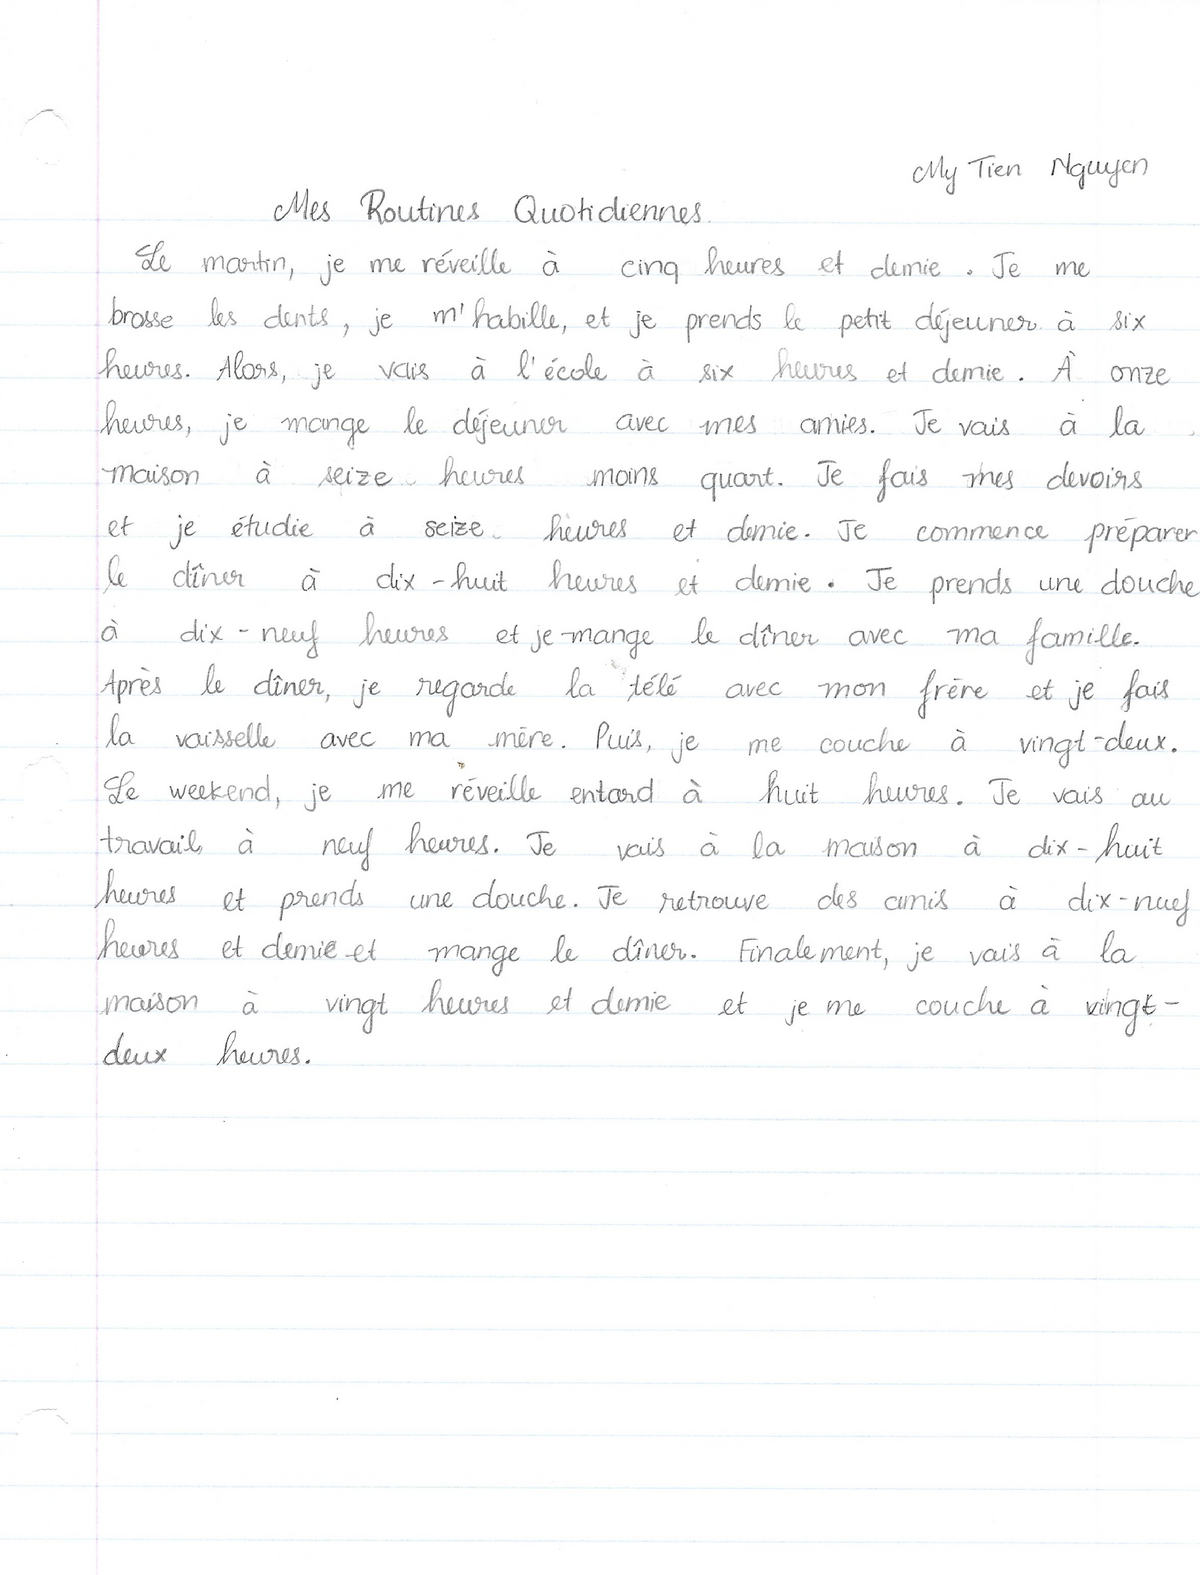 My Tien Nguyen
Mes Routines Quotidiennes.
Le martin, je me réveille à cinq heures et demie. Je me
brosse les dents, je m'habille, et je prends le petit déjeuner à six
heures. Alors, je vais à l'école à six heures et demie. À onze
heures, je mange le déjeuner avec mes amies. Je vais à la
maison à seize heures moins quart. Je fais mes devoirs
et je étudie à seize heures et demie. Je commence préparer
le dîner à dix-huit heures et demie. Je prends une douche
à dix-neuf heures et je mange le dîner avec ma famille.
Après le dîner, je regarde la télé avec mon frère et je fais
la vaisselle avec ma mère. Puis, je me couche à vingt-deux.
Le weekend, je me réveille entard à huit heures. Je vais au
travail à neuf heures. Je vais à la maison à dix-huit
heures et prends une douche. Je retrouve des amis à dix-neuf
heures et demie et mange le dîner. Finalement, je vais à la
maison à vingt heures et demie et je me couche à vingt-
deux heures.